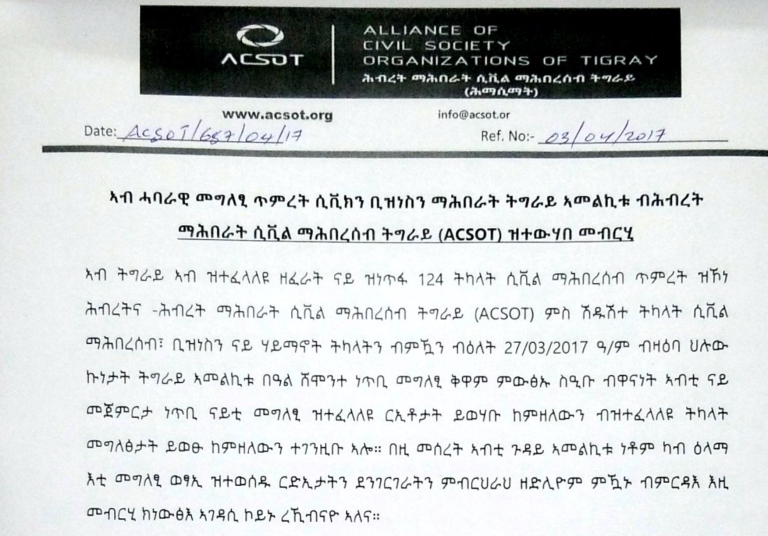 ACSOT
ALLIANCE OF
CIVIL SOCIETY
ORGANIZATIONS OF TIGRAY
ሕብረት ማሕበራት ሲቪል ማሕበረሰብ ትግራይ
(ሕማሲማት)
www.acsot.org info@acsot.or
Date: ACSOT/687/04/17 Ref. No:- 03/04/2017
ኣብ ሓባራዊ መግለፂ ጥምረት ሲቪክን ቢዝነስን ማሕበራት ትግራይ ኣመልኪቱ ብሕብረት
ማሕበራት ሲቪል ማሕበረሰብ ትግራይ (ACSOT) ዝተውሃበ መብርሂ
ኣብ ትግራይ ኣብ ዝተፈላለዩ ዘፈራት ናይ ዝነጥፋ 124 ትካላት ሲቪል ማሕበረሰብ ጥምረት ዝኾነ
ሕብረትና -ሕብረት ማሕበራት ሲቪል ማሕበረሰብ ትግራይ (ACSOT) ምስ ሽዱሽተ ትካላት ሲቪል
ማሕበረሰብ፣ ቢዝነስን ናይ ሃይማኖት ትካላትን ብምዃን ብዕለት 27/03/2017 ዓ/ም ብዛዕባ ህሉው
ኩነታት ትግራይ ኣመልኪቱ በዓል ሸሞንተ ነጥቢ መግለፂ ቅዋም ምውፅኡ ስዒቡ ብዋናነት ኣብቲ ናይ
መጀምርታ ነጥቢ ናይቲ መግለፂ ዝተፈላለዩ ርኢቶታት ይወሃቡ ከምዘለውን ብዝተፈላለዩ ትካላት
መግለፅታት ይወፁ ከምዘለውን ተገንዚቡ ኣሎ። በዚ መሰረት ኣብቲ ጉዳይ ኣመልኪቱ ነቶም ካብ ዕላማ
እቲ መግለፂ ወፃኢ ዝተወሰዱ ርድኢታትን ደንገርገራትን ምብርህራህ ዘድሊዮም ምዃኑ ብምርዳእ እዚ
መብርሂ ክነውፅእ ኣገዳሲ ኮይኑ ረኺብናዮ ኣለና።